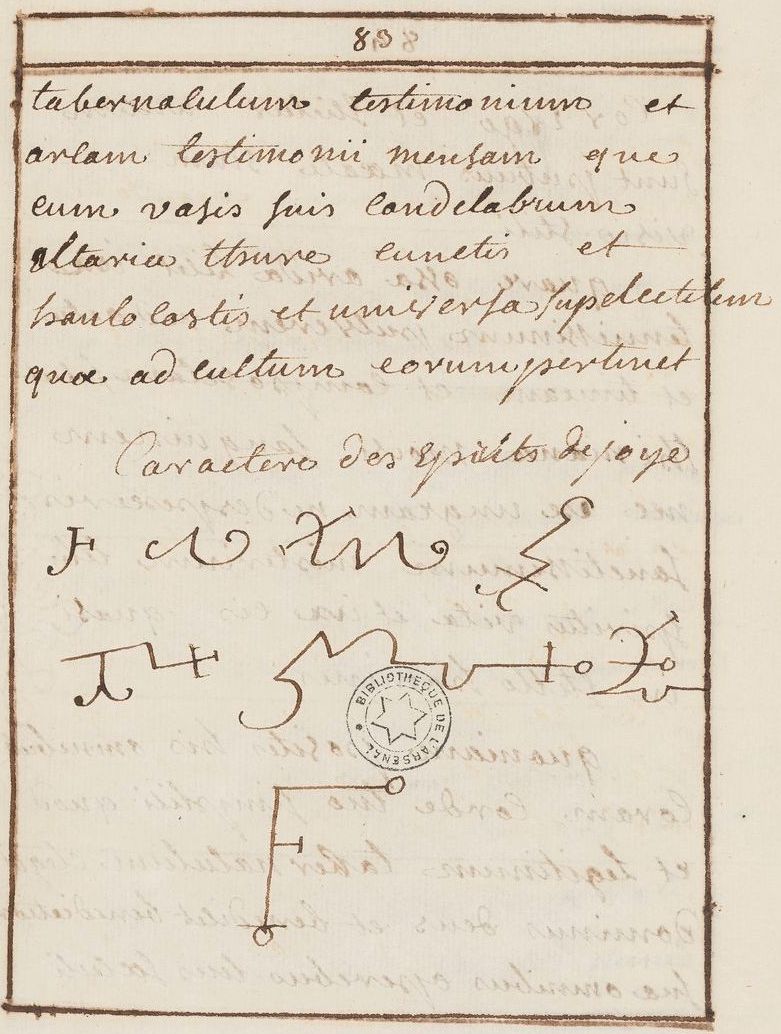 83
tabernalulum testimonium et
arlam testimonii mensam que
cum vasis suis Candelabrum
altaria thure cunctis et
haulo lastis et universa supelectilem
quæ ad cultum eorum pertinet
Caractere des Epsiits de joye
BIBLIOTHEQUE DE L'ARSENAL